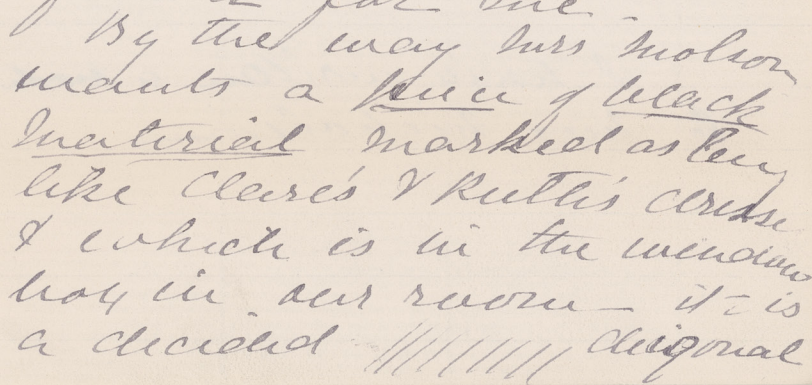 for me
By the way Mrs Molson
wants a piece of black
material marked as being
like Clare's & Ruth's dresse
& which is in the window
box in our room it is
a decided ////////// diagonal